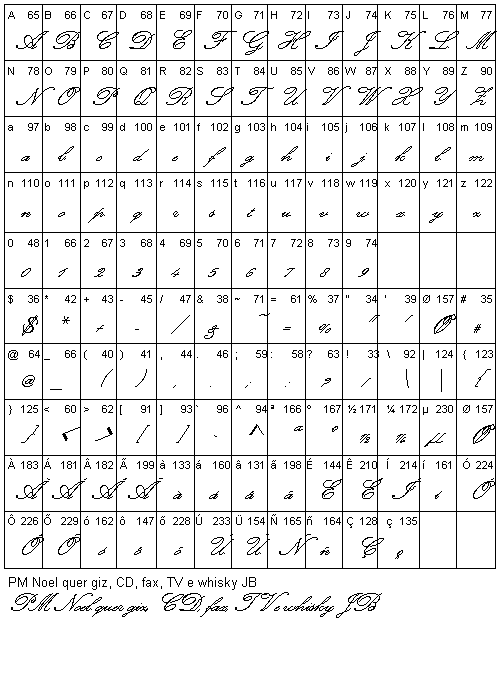 A 65 B 66 C 67 D 68 E 69 F 70 G 71 H 72 I 73 J 74 K 75 L 76 M 77
A B C D E F G H I J K L M
N 78 O 79 P 80 Q 81 R 82 S 83 T 84 U 85 V 86 W 87 X 88 Y 89 Z 90
N O P Q R S T U V W X Y Z
a 97 b 98 c 99 d 100 e 101 f 102 g 103 h 104 i 105 j 106 k 107 l 108 m 109
a b c d e f g h i j k l m
n 110 o 111 p 112 q 113 r 114 s 115 t 116 u 117 v 118 w 119 x 120 y 121 z 122
n o p q r s t u v w x y z
0 48 1 66 2 67 3 68 4 69 5 70 6 71 7 72 8 73 9 74
0 1 2 3 4 5 6 7 8 9
$ 36 * 42 + 43 - 45 / 47 & 38 ~ 71 = 61 % 37 " 34 ' 39 Ø 157 # 35
$ * + - / & ~ = % " ' Ø #
@ 64 _ 66 ( 40 ) 41 , 44 . 46 ; 59 : 58 ? 63 ! 33 \ 92 | 124 { 123
@ _ ( ) , . ; : ? ! \ | {
} 125 < 60 > 62 [ 91 ] 93 ` 96 ^ 94 ª 166 ° 167 ½ 171 ¼ 172 µ 230 Ø 157
} < > [ ] ` ^ ª ° ½ ¼ µ Ø
À 183 Á 181 Â 182 Ã 199 à 133 á 160 â 131 ã 198 É 144 Ê 210 Í 214 í 161 Ó 224
À Á Â Ã à á â ã É Ê Í í Ó
Ô 226 Õ 229 ó 162 ô 147 õ 228 Ú 233 Ü 154 Ñ 165 ñ 164 Ç 128 ç 135
Ô Õ ó ô õ Ú Ü Ñ ñ Ç ç
PM Noel quer giz, CD, fax, TV e whisky JB
PM Noel quer giz, CD, fax, TV e whisky JB